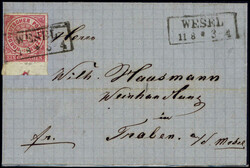 WESEL
11 8 * 3-4
WESEL
Herrn
Wilh. Haasmann
Weinhandlung
in
fr. Traben a/d Mosel